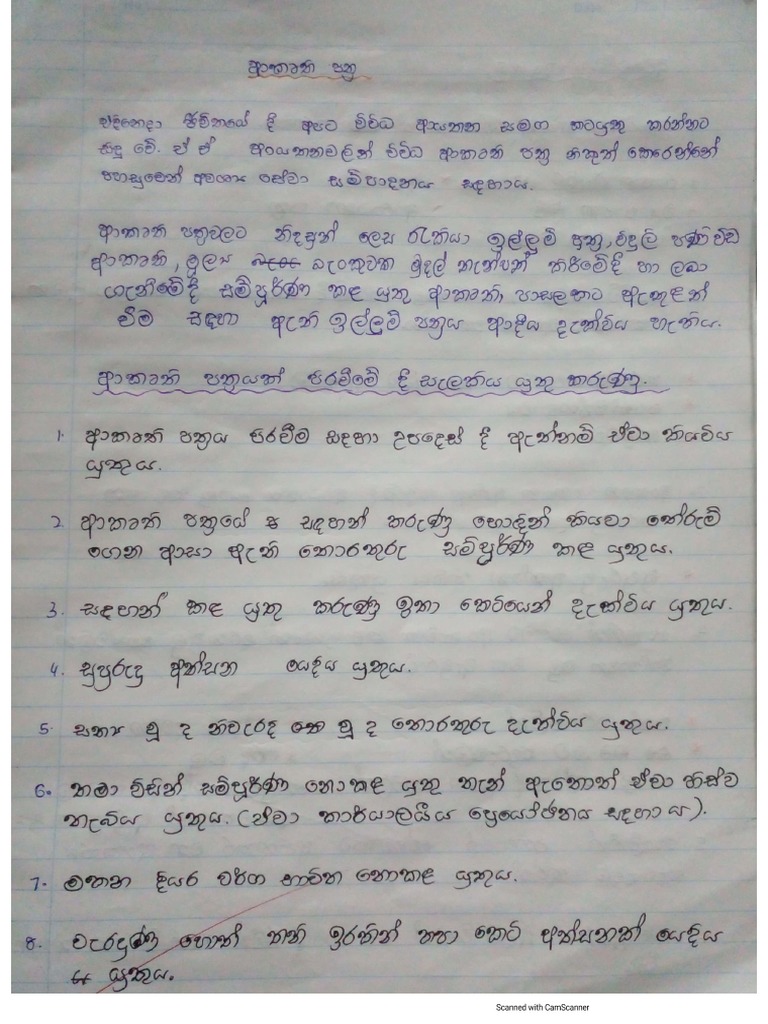 ආකෘති පත්‍ර
එදිනෙදා ජීවිතයේ දී අපට විවිධ ආයතන සමග කටයුතු කරන්නට
සිදු වේ. ඒ ඒ ආයතනවලින් විවිධ ආකෘති පත්‍ර නිකුත් කෙරෙන්නේ
පහසුවෙන් අවශ්‍ය සේවා සම්පාදනය සඳහාය.
ආකෘති පත්‍රවලට නිදසුන් ලෙස රැකියා ඉල්ලුම් පත්‍ර, විදුලි පණිවිඩ
ආකෘති, මූල්‍ය බැංකුවක මුදල් තැන්පත් කිරීමේදී හා ලබා
ගැනීමේදී සම්පූර්ණ කළ යුතු ආකෘති, පාසලකට ඇතුළත්
වීම සඳහා ඇති ඉල්ලුම් පත්‍රය ආදිය දැක්විය හැකිය.
ආකෘති පත්‍රයක් පිරවීමේ දී සැලකිය යුතු කරුණු.
1. ආකෘති පත්‍රය පිරවීම සඳහා උපදෙස් දී ඇත්නම් ඒවා කියවිය
යුතුය.
2. ආකෘති පත්‍රයේ සඳහන් කරුණු හොඳින් කියවා තේරුම්
ගෙන ආසා ඇති තොරතුරු සම්පූර්ණ කළ යුතුය.
3. සඳහන් කළ යුතු කරුණු ඉතා කෙටියෙන් දැක්විය යුතුය.
4. සුපුරුදු අත්සන යෙදිය යුතුය.
5. සත්‍ය වූ ද නිවැරදි වූ ද තොරතුරු දැක්විය යුතුය.
6. තමා විසින් සම්පූර්ණ නොකළ යුතු තැන් ඇතොත් ඒවා හිස්ව
තැබිය යුතුය. (ඒවා කාර්යාලයීය ප්‍රයෝජනය සඳහාය).
7. මකන දියර වර්ග භාවිත නොකළ යුතුය.
8. වැරදුණ හොත් තනි ඉරකින් කපා කෙටි අත්සනක් යෙදිය
යුතුය.
Scanned with CamScanner